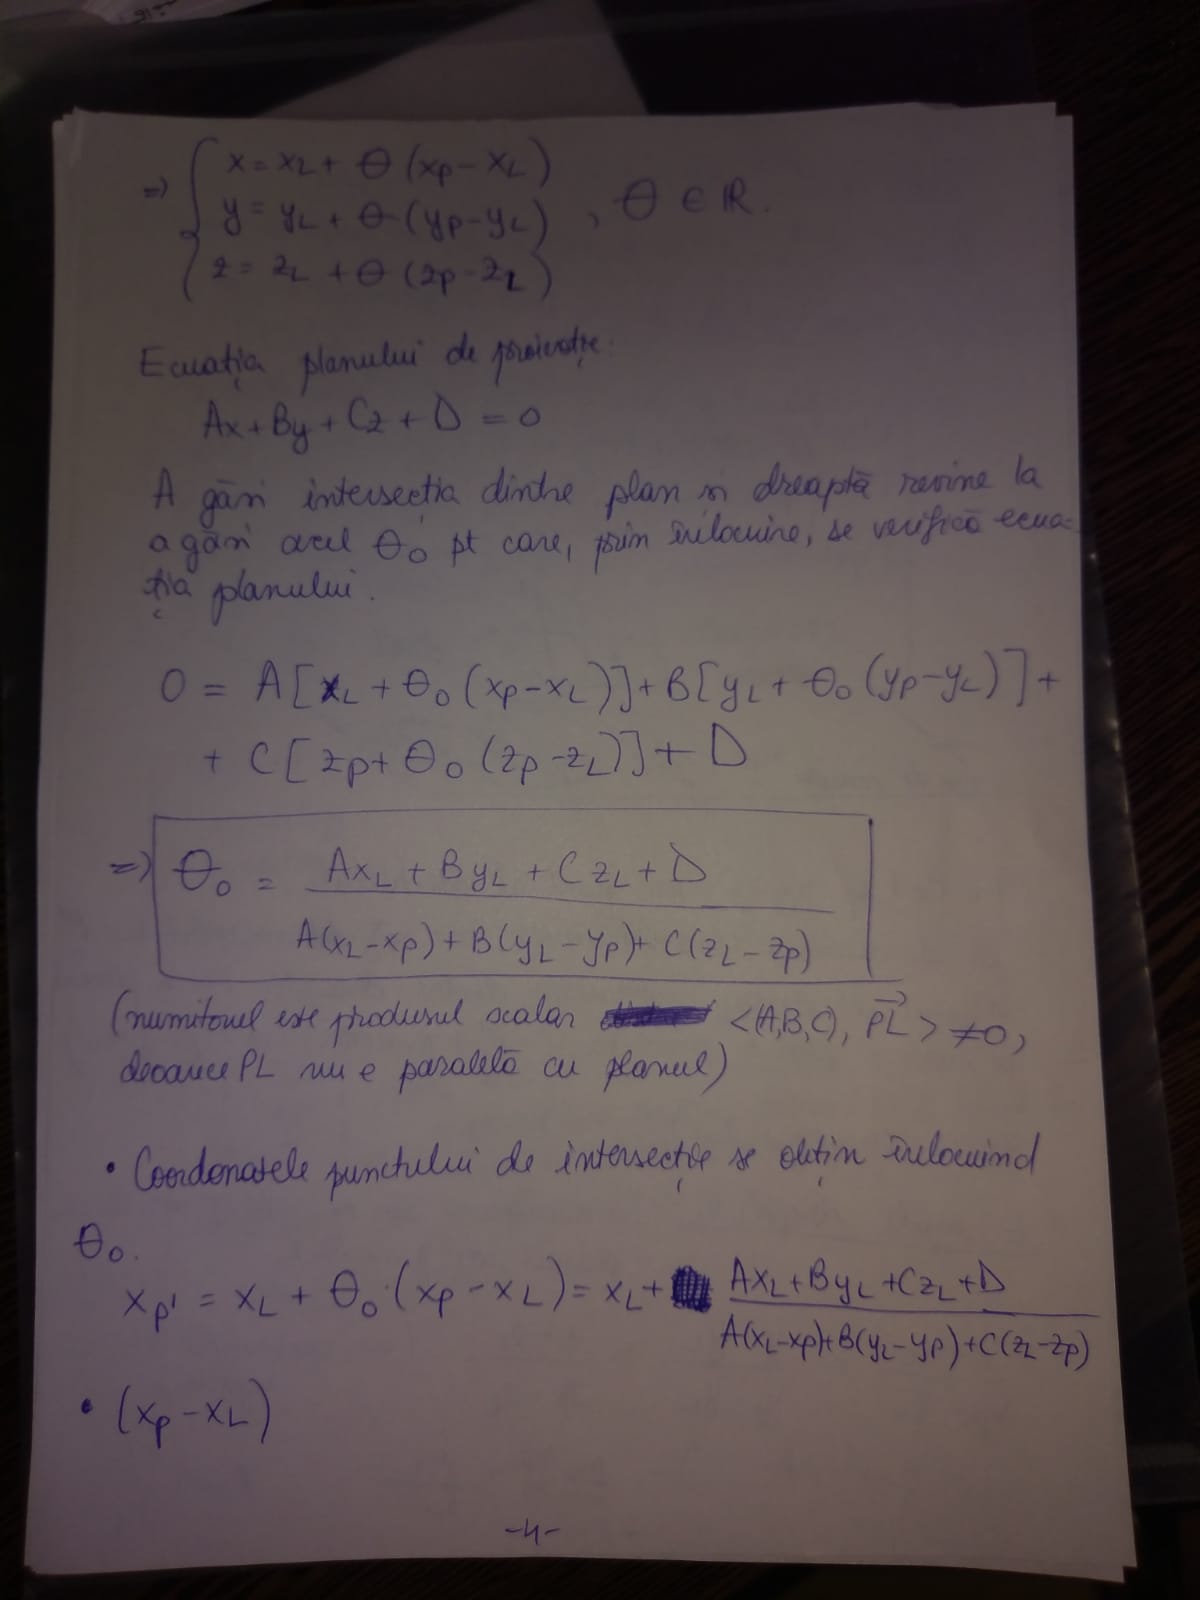 => { x = xL + θ (xp - xL)
y = yL + θ (yp - yL) , θ ∈ ℝ.
z = zL + θ (zp - zL)
Ecuația planului de proiecție:
Ax + By + Cz + D = 0
A găsi intersecția dintre plan și dreaptă revine la
a găsi acel θ0 pt care, prin înlocuire, se verifică ecua-
ția planului.
0 = A[xL + θ0 (xp - xL)] + B[yL + θ0 (yp - yL)] +
+ C[zp + θ0 (zp - zL)] + D
=> θ0 = (AxL + ByL + CzL + D) / (A(xL - xp) + B(yL - yp) + C(zL - zp))
(numitorul este produsul scalar <(A,B,C), PL> ≠ 0,
deoarece PL nu e paralelă cu planul)
• Coordonatele punctului de intersecție se obțin înlocuind
θ0.
xp' = xL + θ0 · (xp - xL) = xL + (AxL + ByL + CzL + D) / (A(xL - xp) + B(yL - yp) + C(zL - zp))
• (xp - xL)
-4-